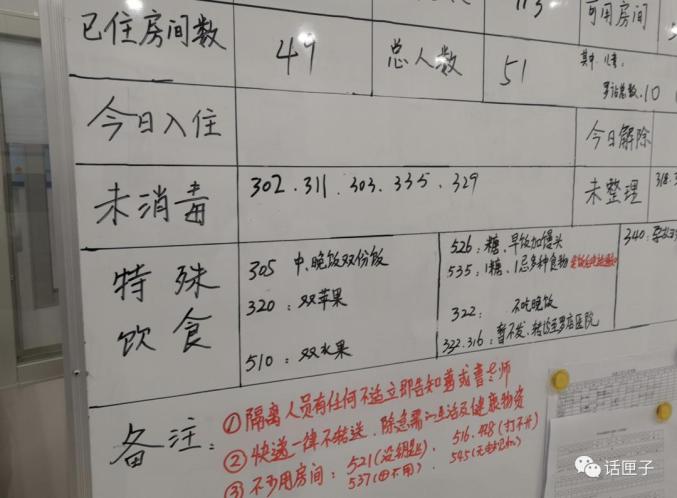 113 可用房间
已住房间数 49 总人数 51 其中
10
今日入住 今日解除
未消毒 302.311.303.335.329 未整理 318.3
特殊饮食
305 中、晚饭双份饭
320：双苹果
510：双水果
526：糖、早饭加馒头
535：1糖、1忌多种食物
322：不吃晚饭
322.316：暂不发、转诊至罗店医院
340：
备注：
① 隔离人员有任何不适立即告知
② 快递一律不转送、除急需的生活及健康物资
③ 不可用房间：521(没钥匙)、516.428(打不开)
537(不用)、545
话匣子